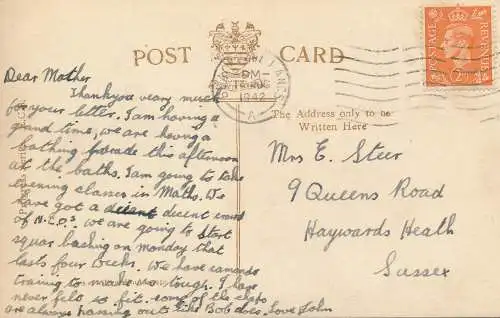 POST CARD
Dear Mother
Thankyou veary much
for your letter. I am having a
grand time, we are havng a
bathing parade this afternoon
at the baths. I am going to take
evening classes in Maths. We
have got a decent decent crowd
of N.C.O's. we are going to start
squar bashing on monday that
lasts four weeks. We have camando
training to make us tough. I have
never felt so fit. some of the chaps
are always passing outs like Bob does. love John
The Address only to be
Written Here
Mrs E. Steer
9 Queens Road
Haywards Heath
Sussex
PM
1942
A
POSTAGE
REVENUE
2D